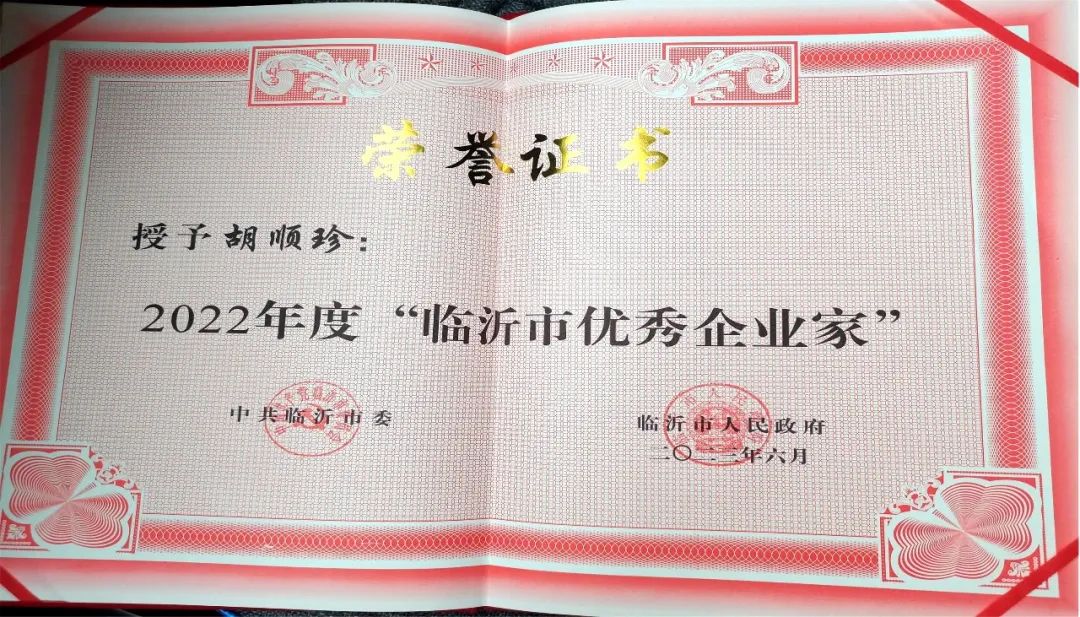 荣誉证书
授予胡顺珍：
2022年度“临沂市优秀企业家”
中共临沂市委
临沂市人民政府
二〇二三年六月